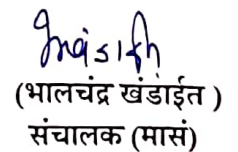 (भालचंद्र खंडाईत )
संचालक (मासं)